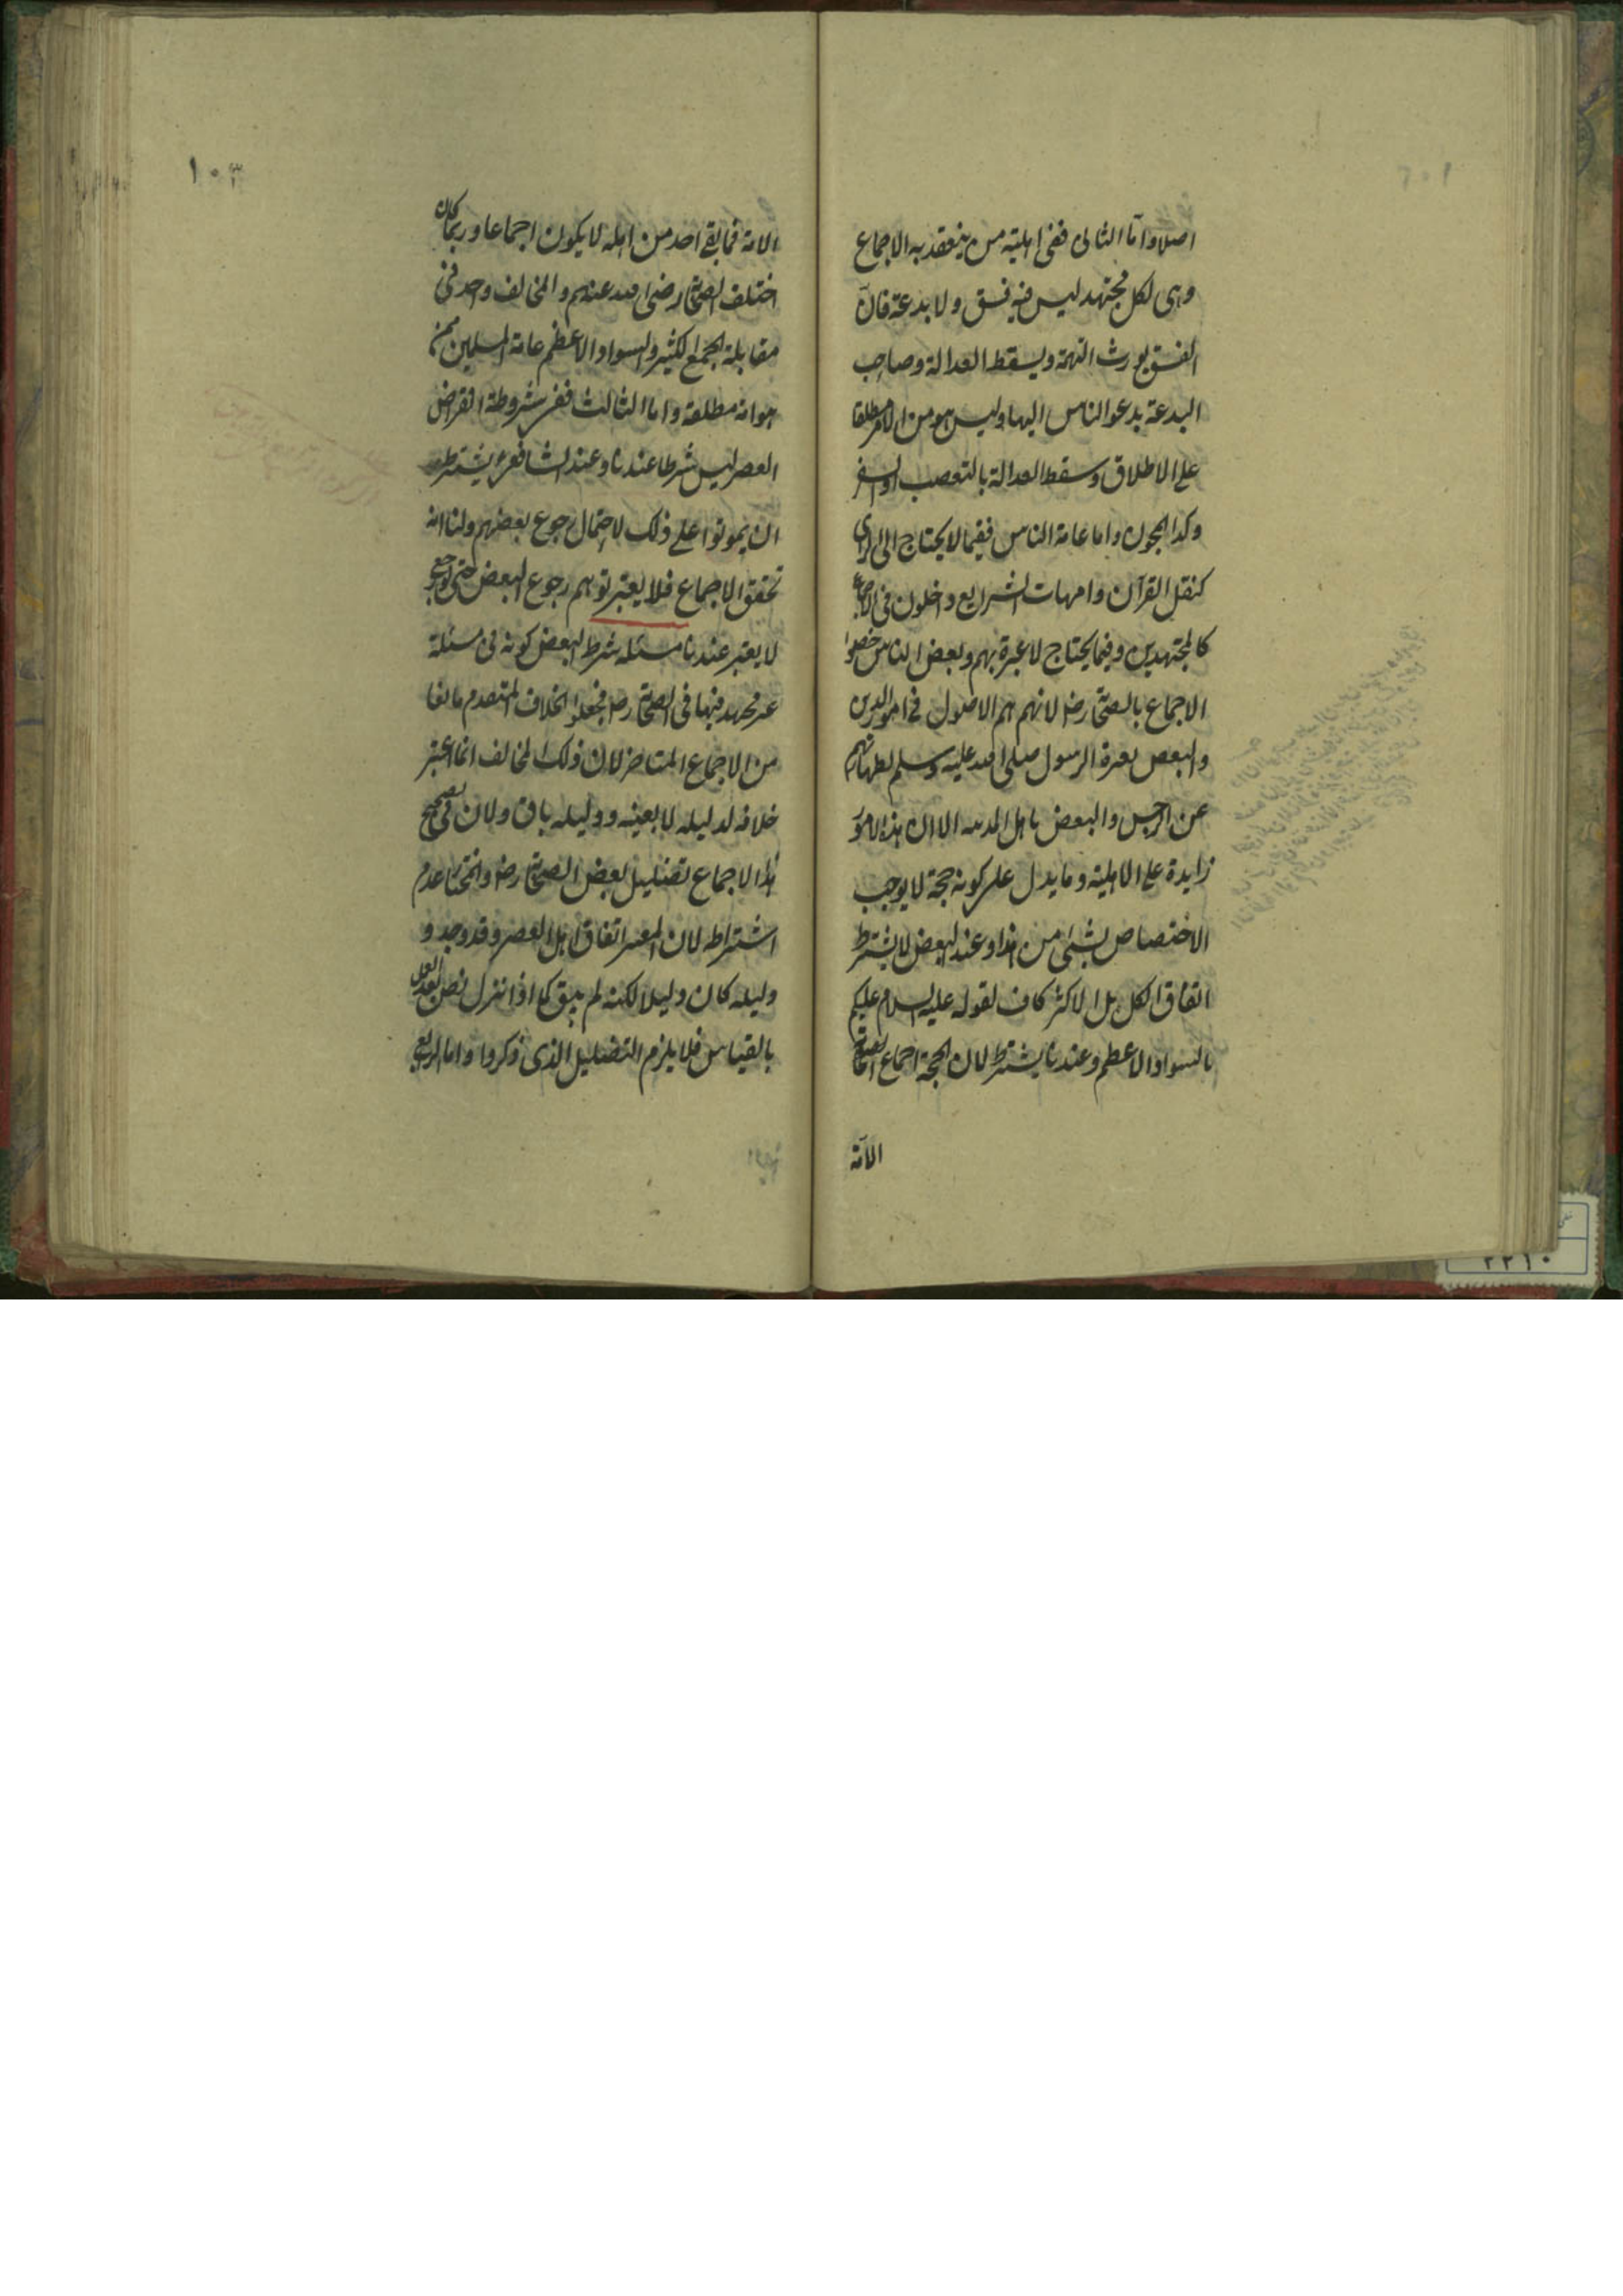 اصلا واما الثانى ففى اهلية من ينعقد به الاجماع
وهى لكل مجتهد ليس فيه فسق ولا بدعة فان
الفسق يورث التهمة ويسقط العدالة وصاحب
البدعة يدعو الناس اليها وليس هو من الامة مطلقا
على الاطلاق وسقط العدالة بالتعصب او السفه
وكذا المجون واما عامة الناس ففيما لا يحتاج الى الراى
كنقل القرآن وامهات الشرايع داخلون فى الاجماع
كالمجتهدين وفيما يحتاج لا عبرة بهم وبعض الناس خصوا
الاجماع بالصحابة رض لانهم هم الاصول فى امور الدين
والبعض بعترة الرسول صلى الله عليه وسلم لطهارتهم
عن الرجس والبعض باهل المدينه الا ان هذه الامور
زايدة على الاهلية وما يدل على كونه حجة لا يوجب
الاختصاص بشئ من هذا وعند البعض لا يشترط
اتفاق الكل بل الاكثر كاف لقوله عليه السلام عليكم
بالسواد الاعظم وعندنا يشترط لان الحجة اجماع
الامة
١٠٣
الامة فما بقى احد من اهله لا يكون اجماعا وربما كان
اختلف الصحابة رضى الله عنهم والمخالف واحد فى
مقابلة الجمع الكثير والسواد الاعظم عامة المسلمين ممن
هو امة مطلقة واما الثالث ففى شروطه انقراض
العصر ليس شرطا عندنا وعند الشافعى يشترط
ان يموتوا على ذلك لاحتمال رجوع بعضهم ولنا انه
تحقق الاجماع فلا يعتبر توهم رجوع البعض حتى لو رجع
لا يعتبر عندنا مسئله شرط البعض كونه فى مسئلة
غير مجتهد فيها فى الصحابة رض فجعلوا الخلاف المتقدم مانعا
من الاجماع المتاخر لان ذلك المخالف انما اعتبر
خلافه لدليله لا بعينه ودليله باق ولان فى تصحيح
هذا الاجماع تضليل بعض الصحابة رض والمختار عدم
اشتراطه لان المعتبر اتفاق اهل العصر وقد وجد و
دليله كان دليلا لكنه لم يبق كما اذا نزل نص بعد العمل
بالقياس فلا يلزم التضليل الذى ذكروا واما الرابع
٢٢١٠